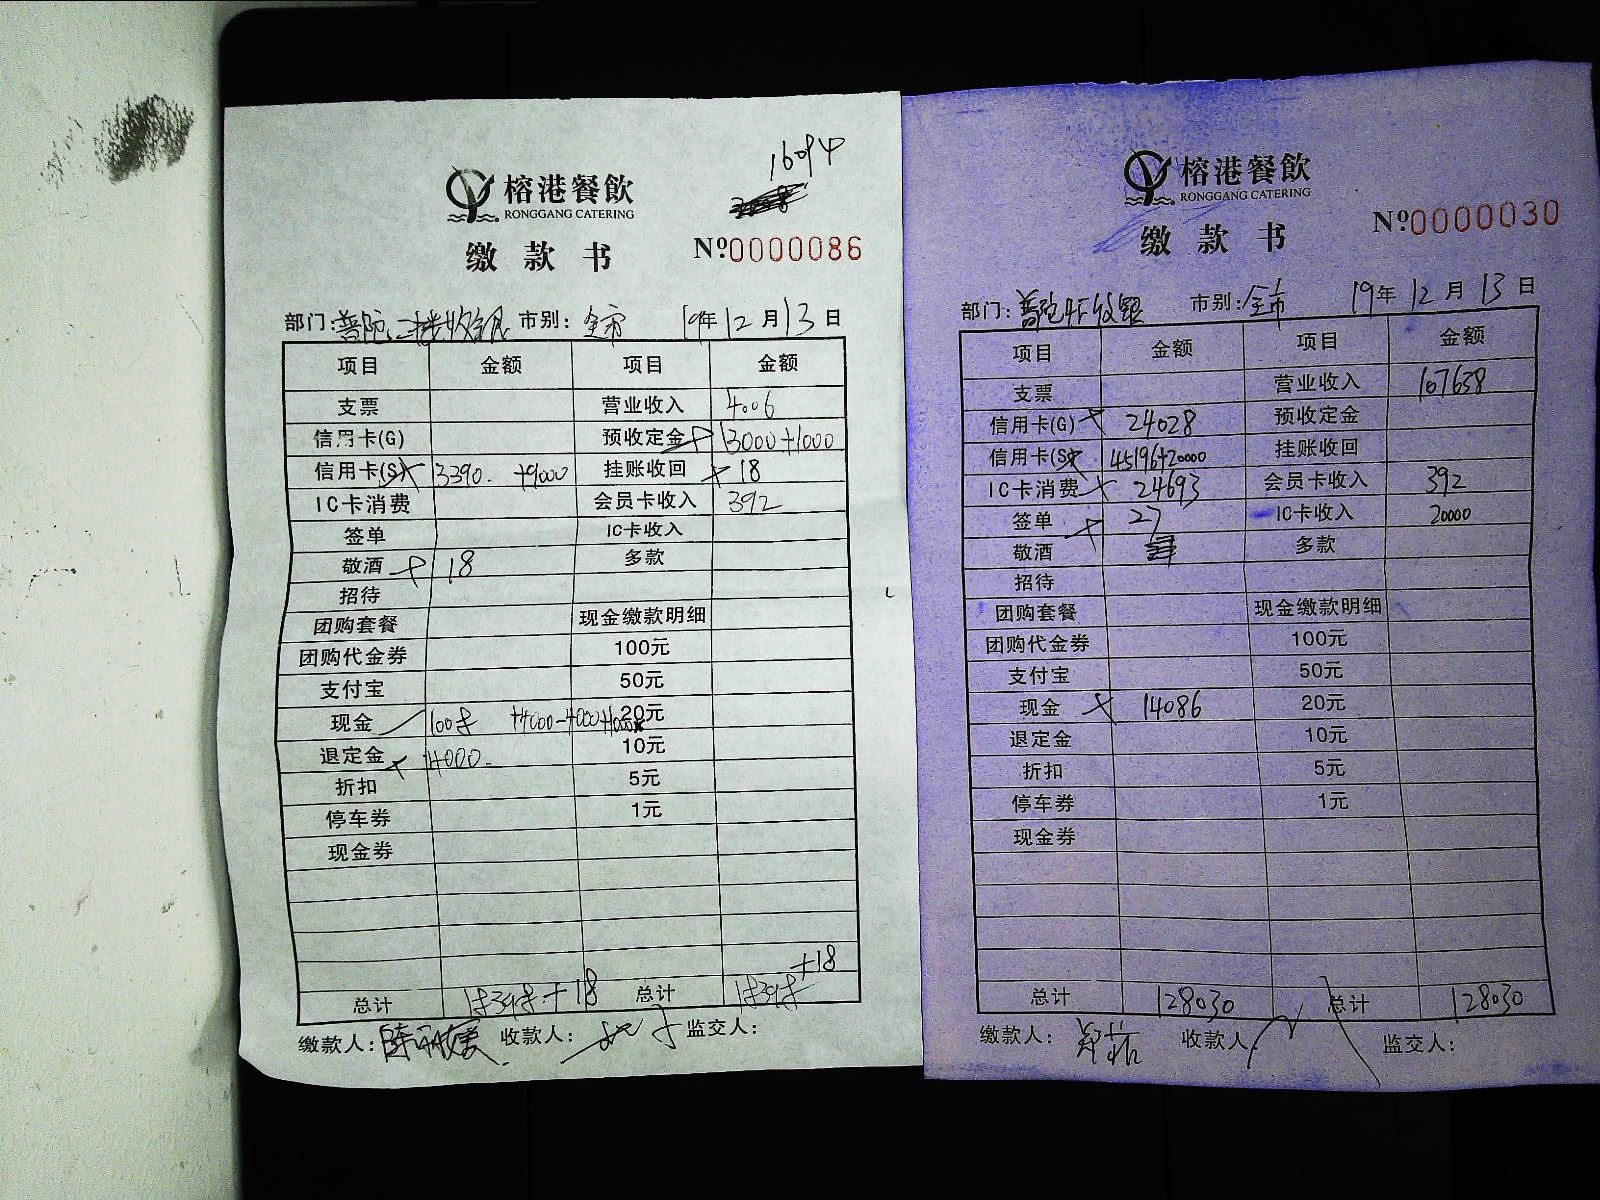 16094
榕港餐飲
RONGGANG CATERING
缴款书
No.0000086
部门: 普陀二楼收银 市别: 全市 19年12月13日
项目 金额 项目 金额
支票 营业收入 4006
信用卡(G) 预收定金 13000+1000
信用卡(S) 3390. +9000 挂账收回 18
IC卡消费 会员卡收入 392
签单 IC卡收入
敬酒 18 多款
招待
团购套餐 现金缴款明细
团购代金券 100元
支付宝 50元
现金 +4000-4000+1000 20元
退定金 4000. 10元
折扣 5元
停车券 1元
现金券
+18
总计 +18 总计
缴款人: 收款人: 监交人:
榕港餐飲
RONGGANG CATERING
缴款书
No.0000030
部门: 普陀4F收银 市别: 全市 19年12月13日
项目 金额 项目 金额
支票 营业收入 107638
信用卡(G) 24028 预收定金
信用卡(S) 45196+20000 挂账收回
IC卡消费 24693 会员卡收入 392
签单 27 IC卡收入 20000
敬酒 多款
招待
团购套餐 现金缴款明细
团购代金券 100元
支付宝 50元
现金 14086 20元
退定金 10元
折扣 5元
停车券 1元
现金券
总计 128030 总计 128030
缴款人: 收款人: 监交人: